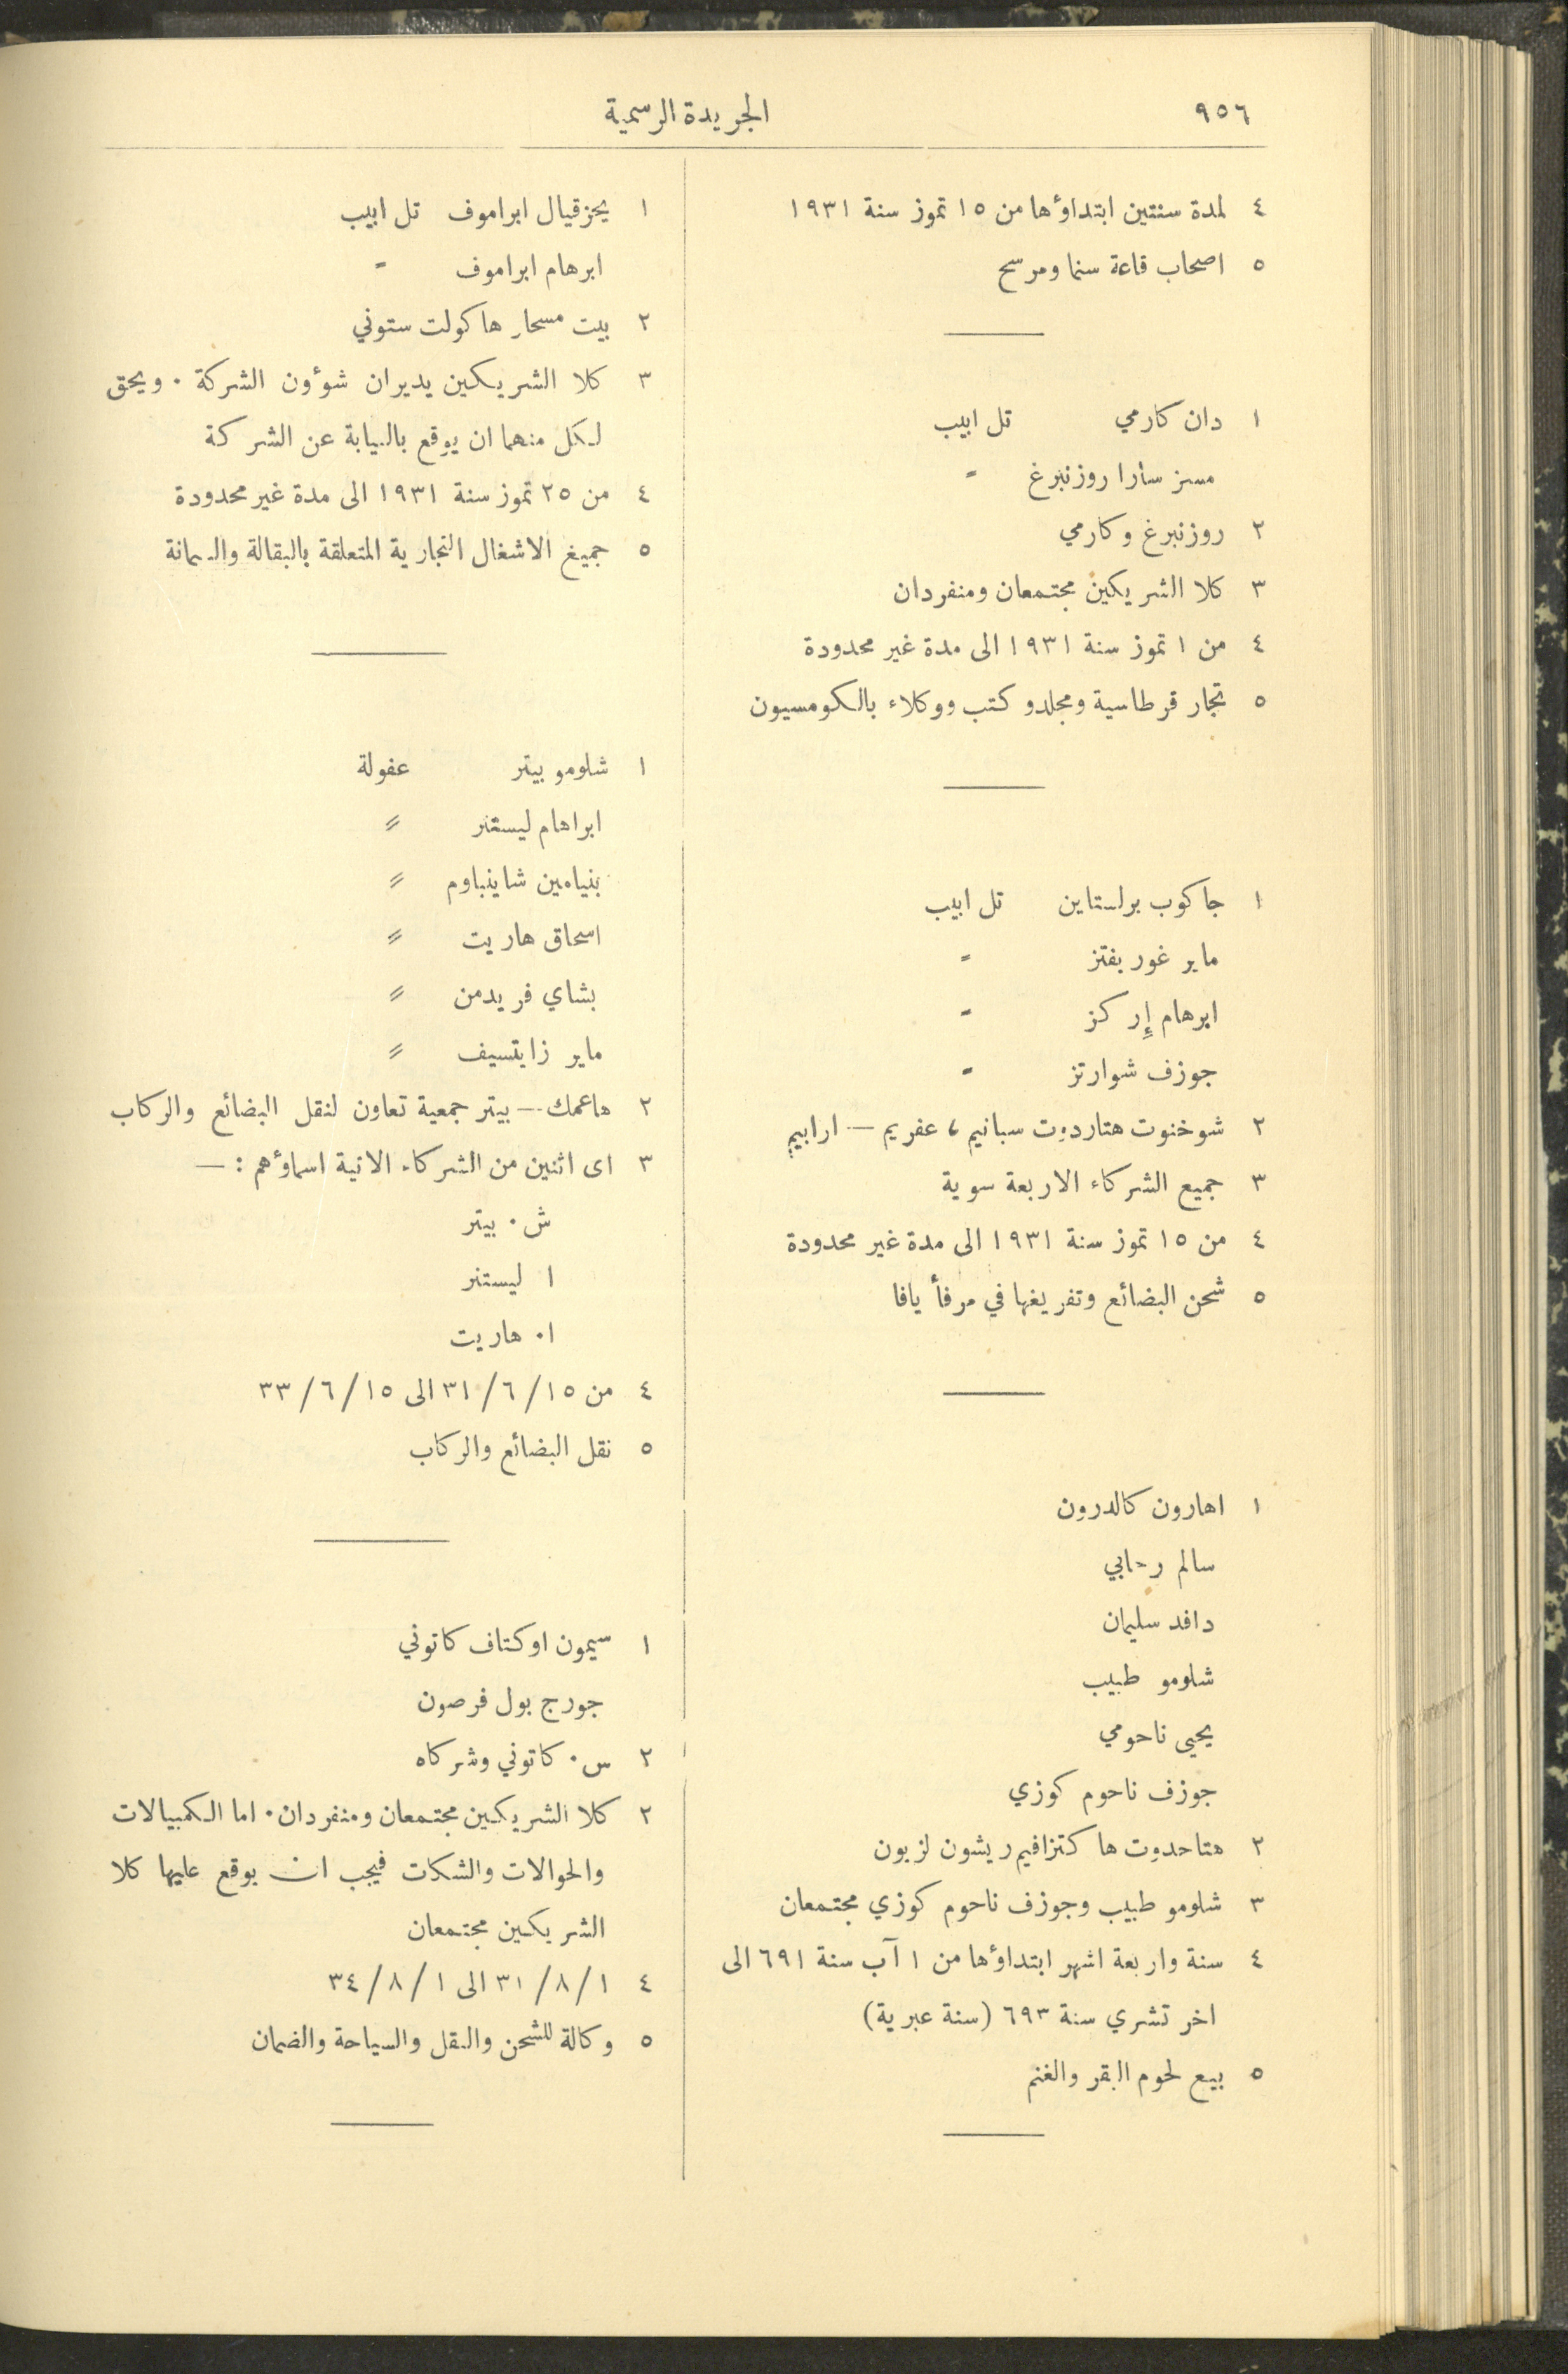 ٩٥٦
الجريدة الرسمية
٤ لمدة سنتين ابتداؤها من ١٥ تموز سنة ١٩٣١
٥ اصحاب قاعة سنما ومرسح
١ دان كارمي تل ابيب
مسز سارا روزنبرغ "
٢ روزنبرغ وكارمي
٣ كلا الشريكين مجتمعان ومنفردان
٤ من ١ تموز سنة ١٩٣١ الى مدة غير محدودة
٥ تجار قرطاسية ومجلدو كتب ووكلاء بالكومسيون
١ جاكوب برلستاين تل ابيب
ماير غوريفتز "
ابرهام إركز "
جوزف شوارتز "
٢ شوخنوت هتاردوت سبانيم، عفريم — ارابيم
٣ جميع الشركاء الاربعة سوية
٤ من ١٥ تموز سنة ١٩٣١ الى مدة غير محدودة
٥ شحن البضائع وتفريغها في مرفأ يافا
١ اهارون كالدرون
سالم رحابي
دافد سليمان
شلومو طبيب
يحيى ناحومي
جوزف ناحوم كوزي
٢ هتاحدوت ها كتزافيم ريشون لزيون
٣ شلومو طبيب وجوزف ناحوم كوزي مجتمعان
٤ سنة واربعة اشهر ابتداؤها من ١ آب سنة ٦٩١ الى
اخر تشري سنة ٦٩٣ (سنة عبرية)
٥ بيع لحوم البقر والغنم
١ يحزقيال ابراموف تل ابيب
ابرهام ابراموف "
٢ بيت مسحار هاكولت ستوني
٣ كلا الشريكين يديران شؤون الشركة. ويحق
لكل منهما ان يوقع بالنيابة عن الشركة
٤ من ٢٥ تموز سنة ١٩٣١ الى مدة غير محدودة
٥ جميغ الاشغال التجارية المتعلقة بالبقالة والسمانة
١ شلومو بيتر عفولة
ابراهام ليستنر "
بنيامين شاينباوم "
اسحاق هاريت "
بشاي فريدمن "
ماير زايتسيف "
٢ هاعمك — بيتر جمعية تعاون لنقل البضائع والركاب
٣ اى اثنين من الشركاء الاتية اسماؤهم : —
ش. بيتر
ا ليستنر
ا. هاريت
٤ من ١٥/٦/٣١ الى ١٥/٦/٣٣
٥ نقل البضائع والركاب
١ سيمون اوكتاف كاتوني
جورج بول فرصون
٢ س. كاتوني وشركاه
٢ كلا الشريكين مجتمعان ومنفردان. اما الكمبيالات
والحوالات والشكات فيجب ان يوقع عليها كلا
الشريكين مجتمعان
٤ ١/٨/٣١ الى ١/٨/٣٤
٥ وكالة للشحن والنقل والسياحة والضمان